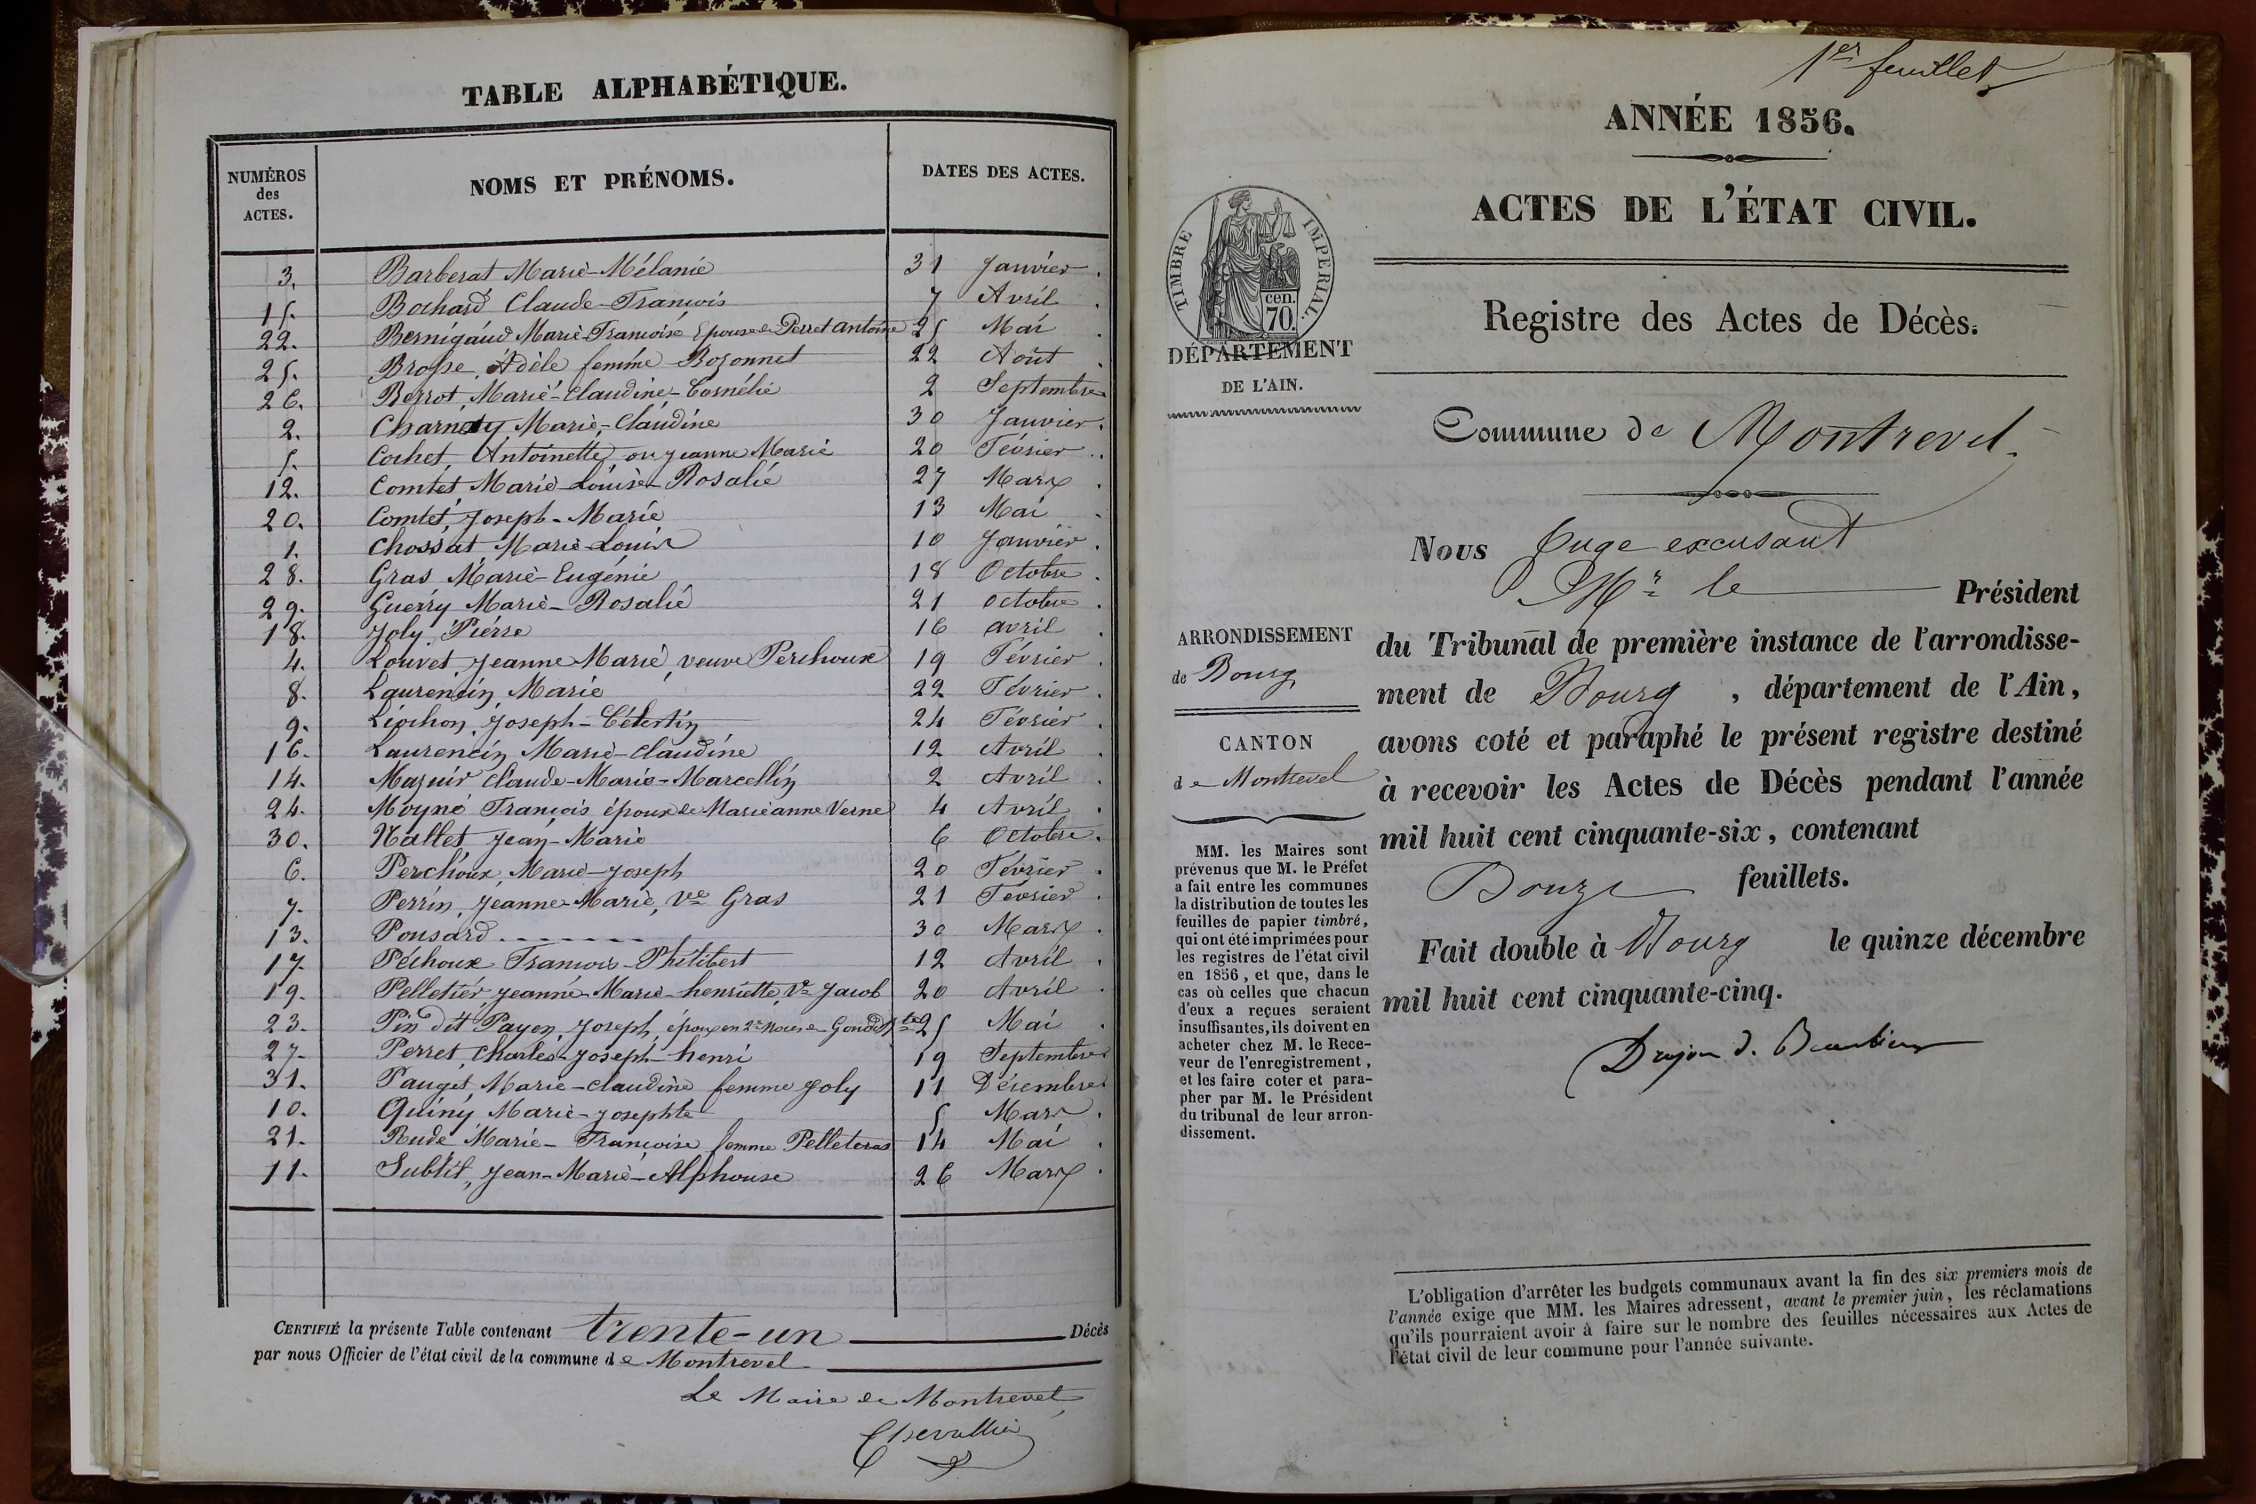 TABLE ALPHABÉTIQUE.
NUMÉROS des ACTES. NOMS ET PRÉNOMS. DATES DES ACTES.
3. Barberat Marie-Mélanie 31 Janvier.
15. Bochard Claude-François 7 Avril.
22. Bernigaud Marie-Françoise Epouse de Perret antoine 25 Mai.
25. Brosse, Adèle femme Bozonnet 22 Août.
26. Berrot, Marie-Claudine-Cornélie 2 Septembre
2. Charnay Marie-Claudine 30 Janvier.
5. Cochet, Antoinette ou jeanne Marie 20 Février.
12. Comtet, Marie-Louise-Rosalie 27 Mars.
20. Comtet, Joseph-Marie 13 Mai
1. Chossat Marie-Louise 10 Janvier.
28. Gras Marie-Eugénie 18 Octobre.
29. Guerry Marie-Rosalie 21 octobre.
18. Joly Pierre 16 avril.
4. Louvet Jeanne Marie, veuve Perchoux 19 Février.
8. Laurencin Marie 22 Février.
9. Liochon, Joseph-Célestin 24 Février.
16. Laurencin Marie-Claudine 12 Avril.
14. Mazuir Claude-Marie-Marcellin 2 Avril.
24. Moyne François époux de Marie anne Verne 4 Avril.
30. Nallet Jean-Marie 6 Octobre.
6. Perchoux, Marie-Joseph 20 Février.
7. Perrin, Jeanne-Marie, Ve Gras 21 Février.
13. Ponsard - - - - - - - 30 Mars.
17. Péchoux François-Philibert 12 Avril.
19. Pelletier Jeanne-Marie-henriette, Ve Jacob 20 Avril.
23. Pin dit Payen, Joseph, époux en 2e Noces de Gonod 25 Mai.
27. Perret, Charles-Joseph-henri 19 Septembre
31. Pauget, Marie-claudine femme Joly 11 Décembre
10. Quiny Marie-Josephte 5 Mars.
21. Rude Marie-Françoise femme Pelleteras 14 Mai.
11. Subtil, Jean-Marie-Alphonse 26 Mars.
CERTIFIÉ la présente Table contenant trente-un Décès
par nous Officier de l'état civil de la commune de Montrevel
Le Maire de Montrevel,
Chevallier
1er feuillet
ANNÉE 1856.
ACTES DE L'ÉTAT CIVIL.
TIMBRE IMPERIAL.
cen. 70.
DÉPARTEMENT
DE L'AIN.
Registre des Actes de Décès.
Commune de Montrevel.
Nous Juge excusant
Mr le Président
du Tribunal de première instance de l'arrondisse-
ment de Bourg, département de l'Ain,
avons coté et paraphé le présent registre destiné
à recevoir les Actes de Décès pendant l'année
mil huit cent cinquante-six, contenant
Douze feuillets.
Fait double à Bourg le quinze décembre
mil huit cent cinquante-cinq.
ARRONDISSEMENT
de Bourg
CANTON
de Montrevel
MM. les Maires sont
prévenus que M. le Préfet
a fait entre les communes
la distribution de toutes les
feuilles de papier timbré,
qui ont été imprimées pour
les registres de l'état civil
en 1856, et que, dans le
cas où celles que chacun
d'eux a reçues seraient
insuffisantes, ils doivent en
acheter chez M. le Rece-
veur de l'enregistrement,
et les faire coter et para-
pher par M. le Président
du tribunal de leur arron-
dissement.
L'obligation d'arrêter les budgets communaux avant la fin des six premiers mois de
l'année exige que MM. les Maires adressent, avant le premier juin, les réclamations
qu'ils pourraient avoir à faire sur le nombre des feuilles nécessaires aux Actes de
l'état civil de leur commune pour l'année suivante.